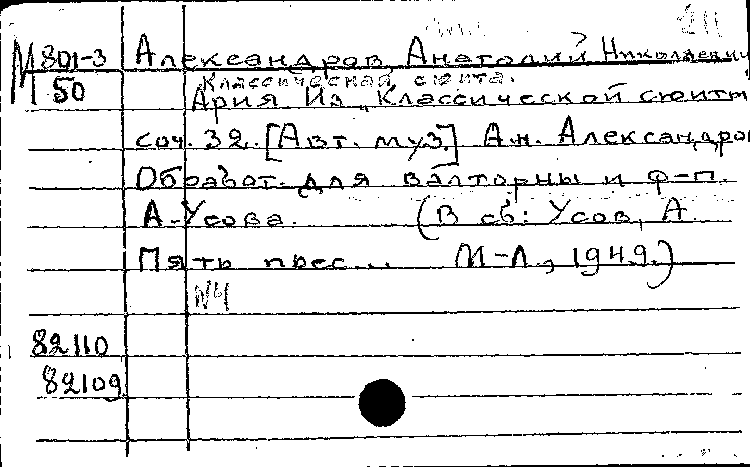 211
М 801-3 Александров Анатолий Николаевич
50 Классическая сюита.
Ария из "Классической сюиты
соч. 32. [Авт. муз.] Ан. Александров
Обработ. для валторны и ф-п.
А. Усова. (В сб: Усов, А.
Пять пьес... М-Л, 1949.)
№4
82110
82109